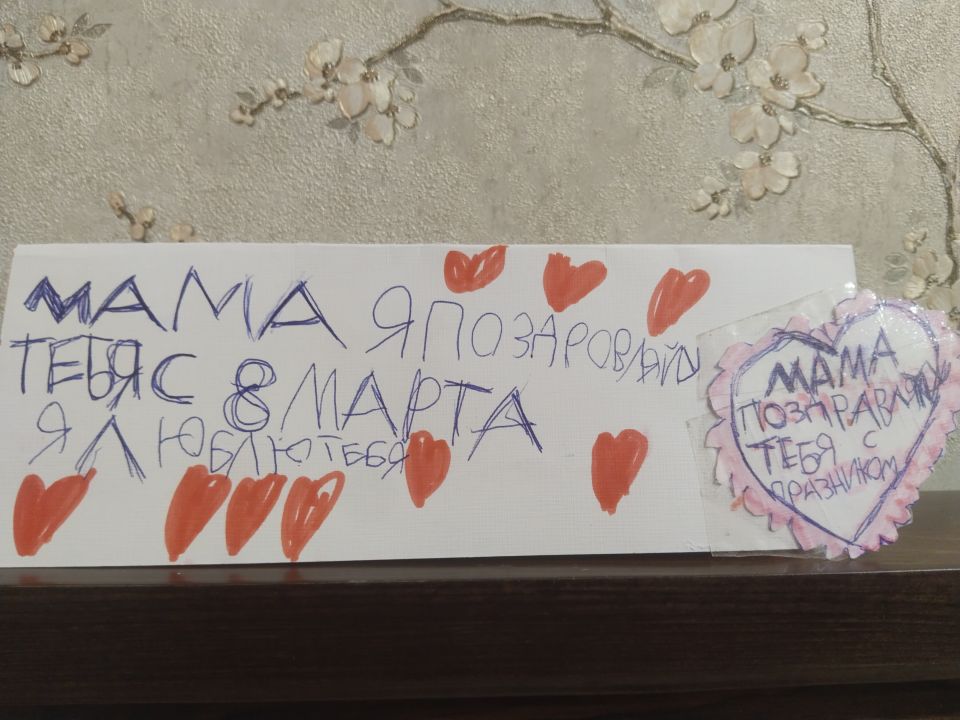 МАМА Я ПОЗДРОВЛЯЙЮ
ТЕБЯ С 8 МАРТА
Я ЛЮБЛЮ ТЕБЯ
МАМА
ПОЗДРАВЛЯЮ
ТЕБЯ С
ПРАЗНИКОМ